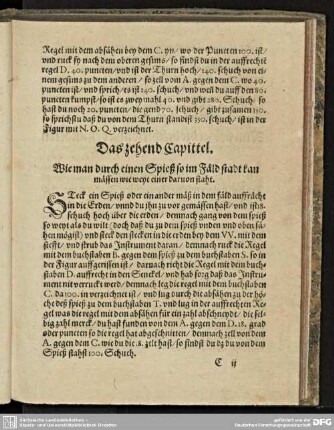 Regel mit dem absåhen bey dem C. yn/ wo der Puncten 100. ist/
vnd ruck sy nach dem oberen gesims/ so findst du in der auffrechtẽ
regel D. 40. puncten/ vnd ist der Thurn hoch/ 140. schuch von ei
nem gesims zu dem anderen/ so zell von A. gegen dem C. wo 40.
puncten ist/ vnd sprich/ es ist 140. schuch/ vnd weil du auff den 80.
puncten kumpst/ so ist es zwey mahl 40. vnd gibt 280. Schuch/ so
hast du noch 20. puncten/ die gend 70. schuch/ gibt zusamen 350.
so sprichstu daß du von dem Thurn standist 350. schuch/ ist in der
Figur mit N. O. Q. verzeichnet.
Das zehend Capittel.
Wie man durch einen Spieß so im Fåld stadt kan
måssen wie weyt einer daruon staht.
STeck ein Spieß oder ein ander måß in dem fåld auffråcht
in die Erden/ vnnd du ihn zu vor gemässen hast/ vnd ist 18.
schuch hoch über die erden/ demnach gang von dem spieß
so weyt als du wilt/ doch daß du zu dem spieß vnden vnd oben så-
hen mögist) vnd steck den stecken in die erden bey dem VV. mit dem
stefft/ vnd strub das Instrument daran/ demnach ruck die Regel
mit dem buchstaben B. gegen dem spieß zu dem buchstaben S. so in
der Figur auffgerissen ist/ darnach richt die Regel mit dem buch-
staben D. auffrecht in den Senckel/ vnd hab sorg daß das Instru-
ment nit verruckt werd/ demnach leg die regel mit dem buchstaben
C. da 100. in verzeichnet ist/ vnd lug durch die absåhen zu der hö-
che deß spieß zu dem buchstaben T. vnd lug in der auffrechten Re
gel was die regel mit dem absåhen für ein zahl abschneydt/ die sel-
big zahl merck/ du hast funden von dem A. gegen dem D. 18. grad
oder puncten so die regel hat abgeschnitten/ demnach zell von dem
A. gegen dem C. wie du die 18. zelt hast/ so findst du dz du von dem
Spieß stahst 100. Schuch.
C ij
Sächsische Landesbibliothek -
Staats- und Universitätsbibliothek Dresden
gefördert von der
Deutschen Forschungsgemeinschaft
DFG